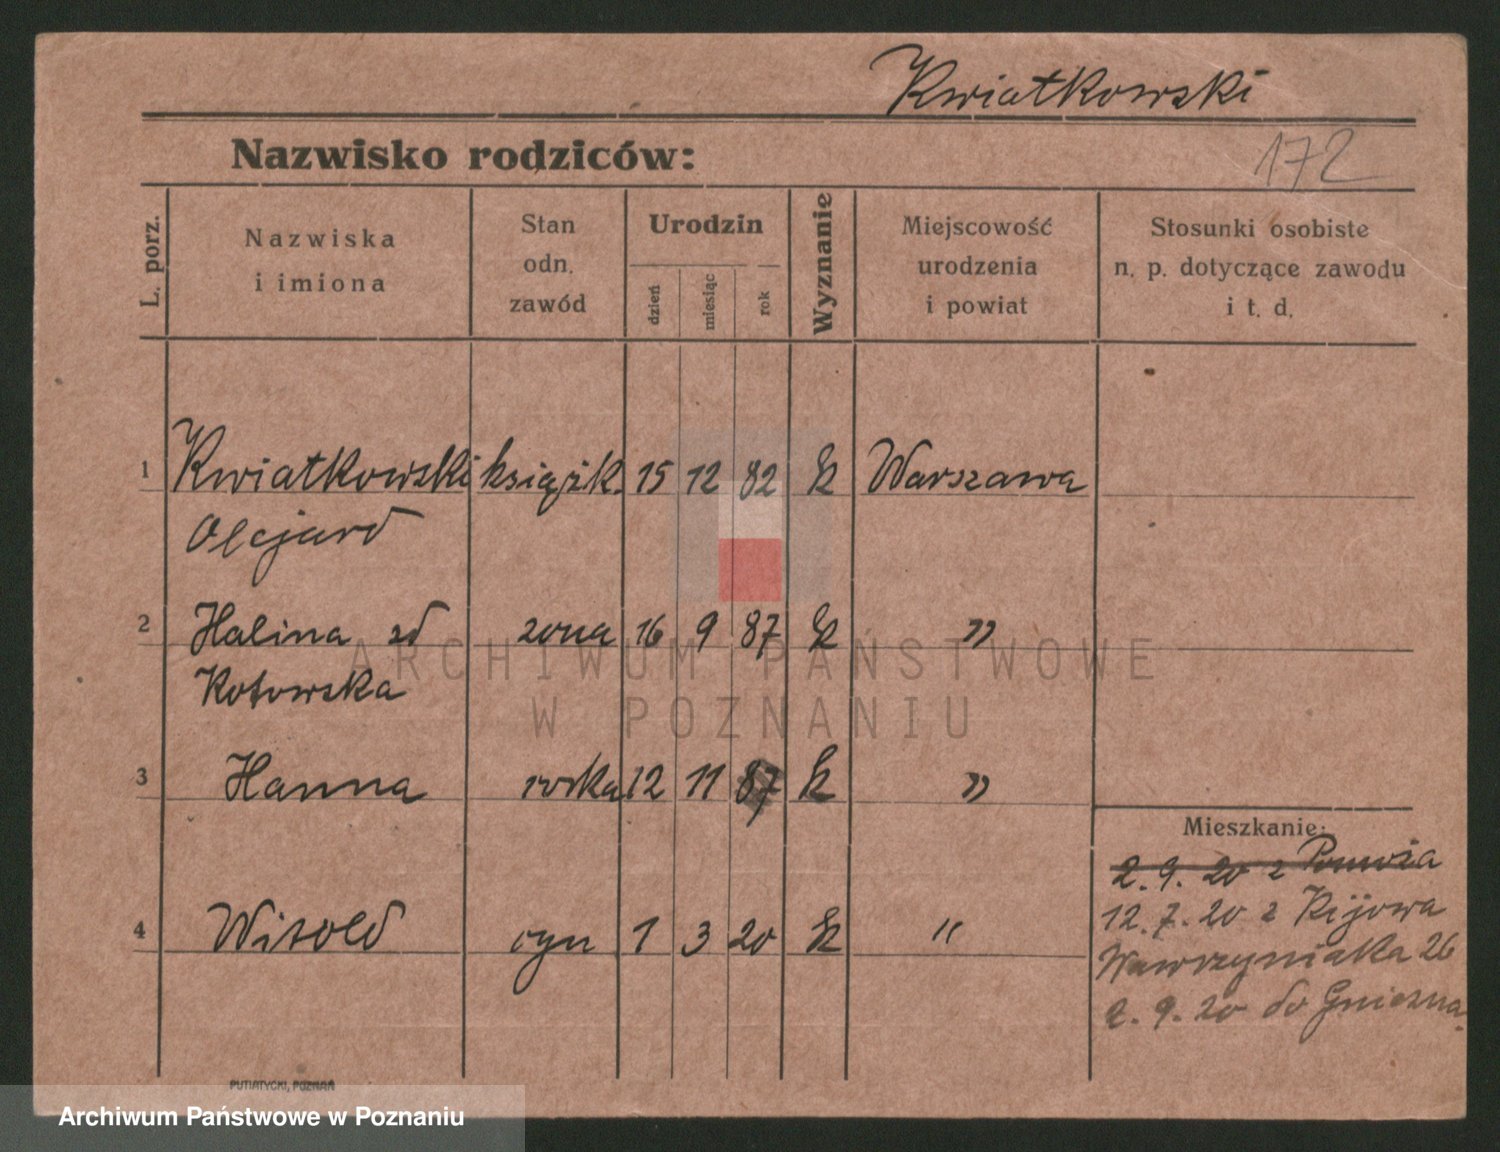 Kwiatkowski
172
Nazwisko rodziców:
L. porz.
Nazwiska
i imiona
Stan
odn.
zawód
Urodzin
dzień
miesiąc
rok
Wyznanie
Miejscowość
urodzenia
i powiat
Stosunki osobiste
n. p. dotyczące zawodu
i t. d.
1 Kwiatkowski książk. 15 12 82 k Warszawa
2 Halina zd żona 16 9 87 k "
Kotowska
3 Hanna 12 11 87 k "
4 Witold syn 1 3 20 k "
Mieszkanie:
2. 9. 20 z
12. 7. 20 z Kijowa
Wawrzyniaka 26
2. 9. 20 do Gniezna
PUTIATYCKI, POZNAŃ
ARCHIWUM PAŃSTWOWE
W POZNANIU
Archiwum Państwowe w Poznaniu